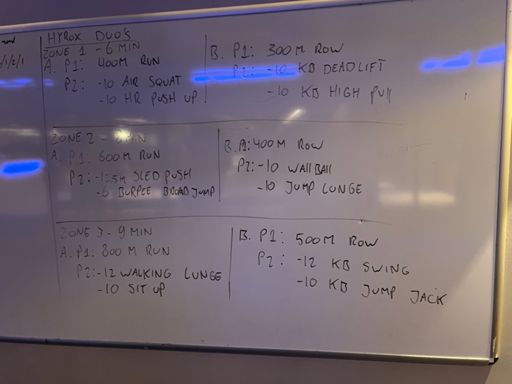 HYROX DUO'S
ZONE 1 - 6 MIN
A. P1: 400M RUN
P2: -10 AIR SQUAT
-10 HR PUSH UP
B. P1: 300M ROW
P2: -10 KB DEADLIFT
-10 KB HIGH PULL
ZONE 2 - MIN
A. P1: 600M RUN
P2: -15M SLED PUSH
-6 BURPEE BROAD JUMP
B. P1: 400M ROW
P2: -10 WALLBALL
-10 JUMP LUNGE
ZONE 3 - 9 MIN
A. P1: 800M RUN
P2: -12 WALKING LUNGE
-10 SIT UP
B. P1: 500M ROW
P2: -12 KB SWING
-10 KB JUMP JACK